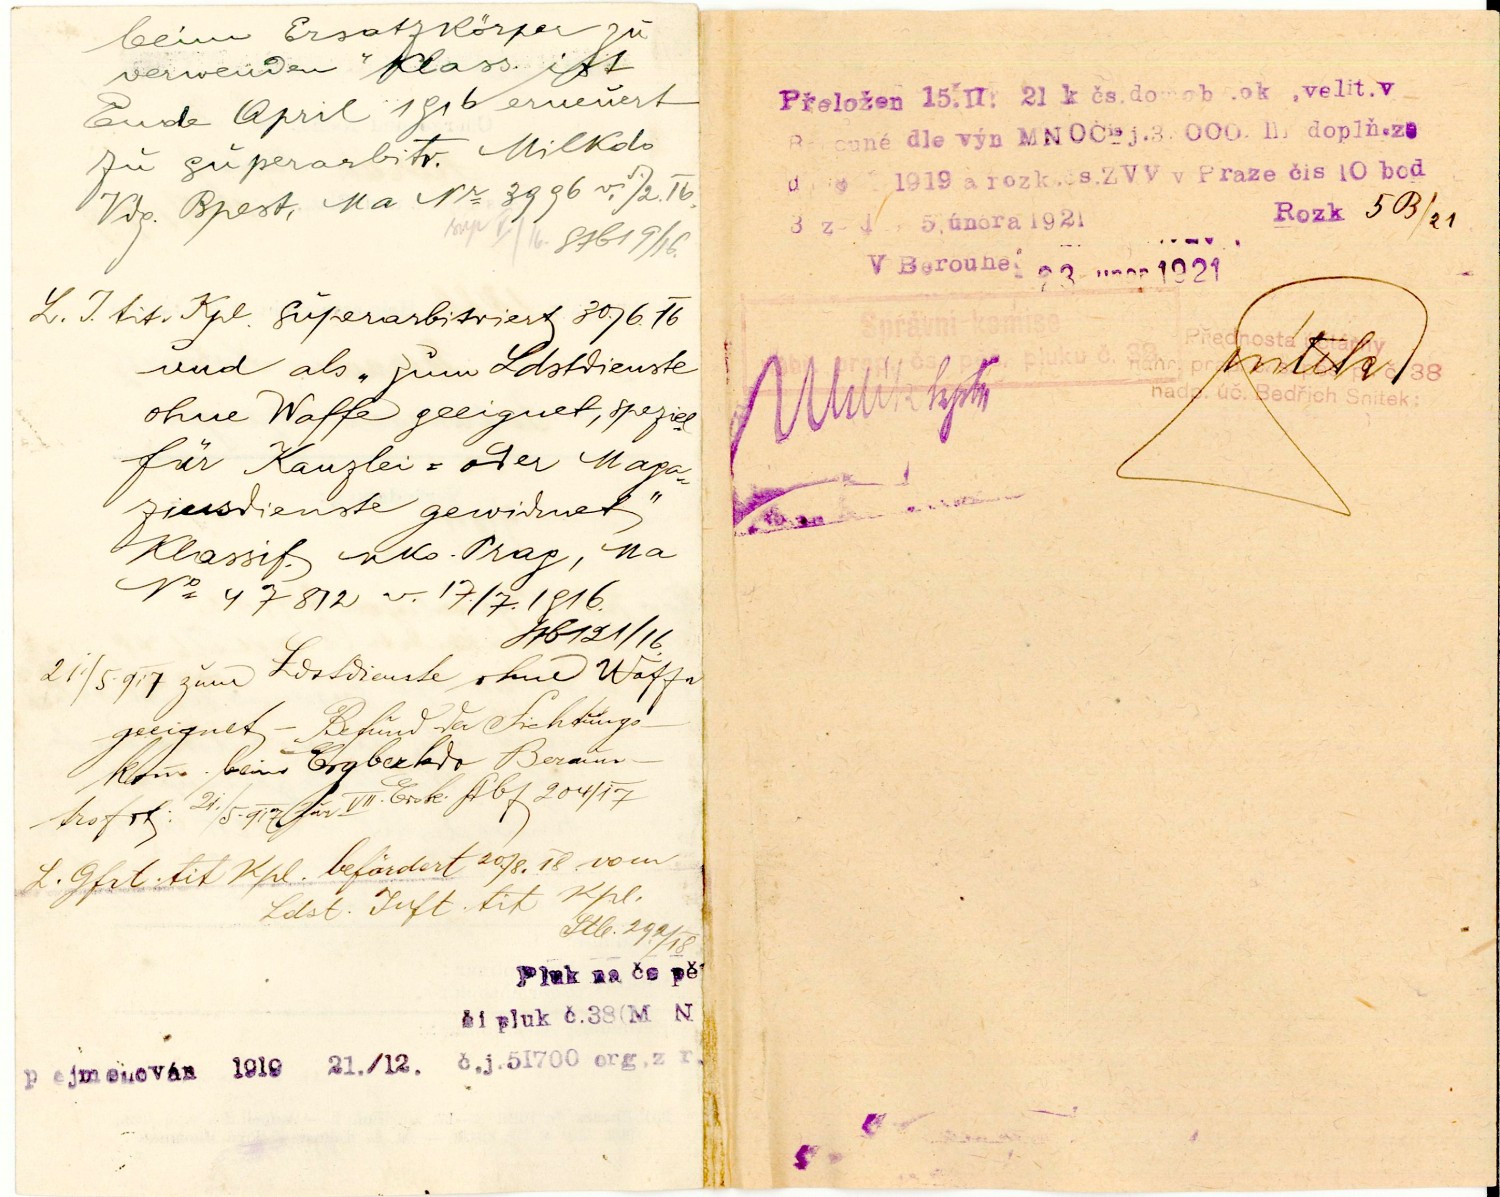 beim Ersatzkörper zu
verwenden" Klass. ist
Ende April 1916 erneuert
zu superarbitr. Milkdo
Bpest, Ma Nr 3996 v. 5./2. 16.
Stb 19/16.
L. I. tit. Kpl. superarbitriert 30/6. 16
und als „zum Ldstdienste
ohne Waffe geeignet, speziel
für Kanzlei= oder Maga-
zinsdienste gewidmet"
Klassif. Mko. Prag, Ma
No 47812 v. 17./7. 1916.
Stb 121/16.
21./5. 917 zum Ldstdienste ohne Waffe
geeignet – Befund der Sichtungs-
kom. beim Ergbezkdo Beraun
21./5. 917 für VII. 204/17
L. Gfrt. tit Kpl. befördert 20/8. 18 vom
Ldst. Inft. tit Kpl.
Stb. 292/18
Pluk na čs pě
ší pluk č.38(M N
přejmenován 1919 21./12. č.j.51700 org.z r.
Přeložen 15.II. 21 k čs.do ob .ok .velit.v
Berouně dle výn MNOČis j.3.000. doplň.ze
1919 a rozk.čs.ZVV v Praze čis 10 bod
3 z 5.února 1921 Rozk 5B/21
V Berouně 23 února 1921
Správní komise
čs. pěš. pluku č. 38
Přednosta
38
nadp. úč. Bedřich Snítek: